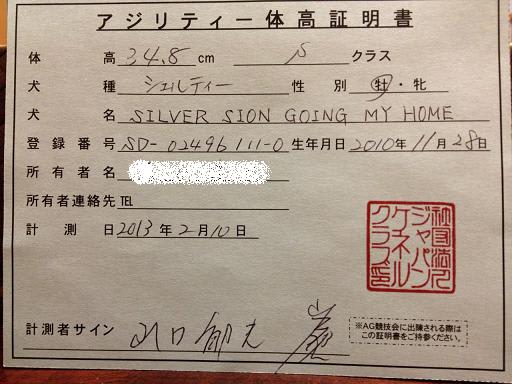 アジリティー体高証明書
体高 34.8 cm S クラス
犬種 シェルティー 性別 牡・牝
犬名 SILVER SION GOING MY HOME
登録番号 SD-02496111-0 生年月日 2010年11月28日
所有者名
所有者連絡先 TEL
計測日 2013年2月10日
社団法人
ジャパン
ケネル
クラブ印
計測者サイン 山口郁夫
※AG競技会に出陳される際は
この証明書をご持参ください。